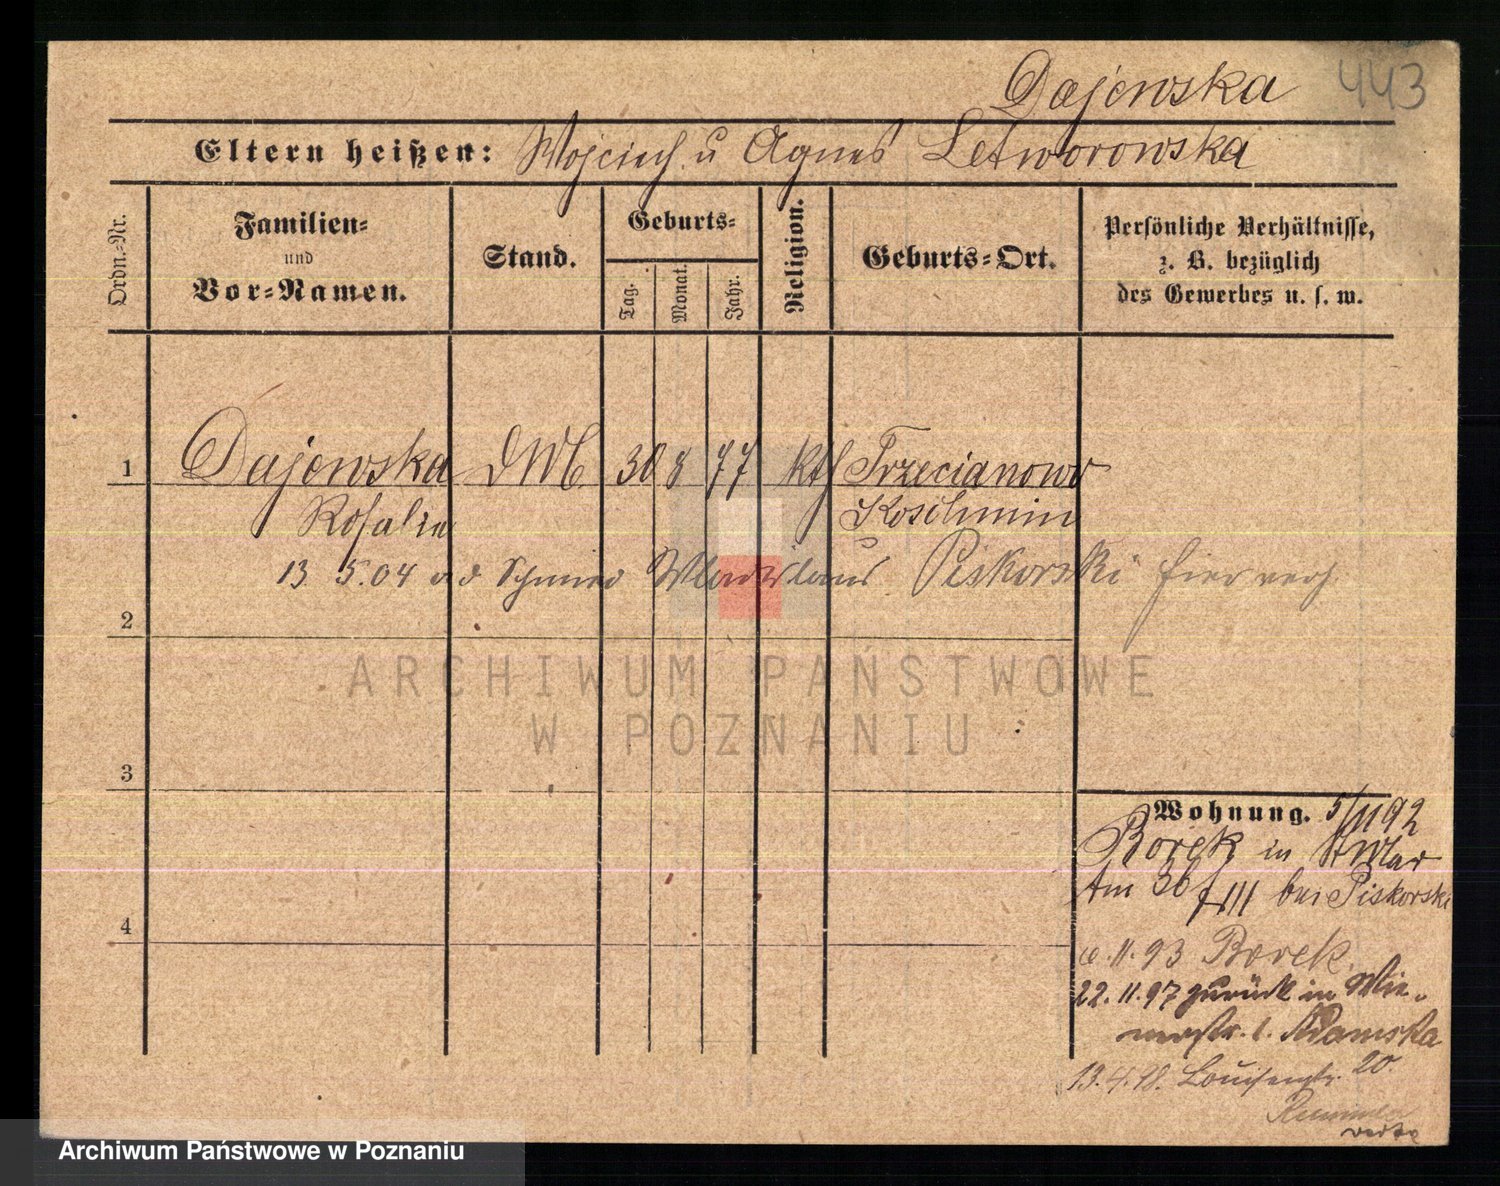 Dajewska 443
Eltern heißen: Wojciech u Agnes Letworowska
Ordn.=Nr.
Familien=
und
Vor=Namen.
Stand.
Geburts=
Tag.
Monat.
Jahr.
Religion.
Geburts=Ort.
Persönliche Verhältnisse,
z. B. bezüglich
des Gewerbes u. s. w.
1 Dajewska 30 8 77 kth Trzecianowo
Rosalie Koschmin
13 5.04 a d Schmied Wladislaus Piskorski hier verh
2
3
4
Wohnung. 5/11 92
Borek in
36 III bei Piskorski
11.93 Borek
22.11.97 zurück in Wie-
nerstr. 1. Adamska
13.4.98. Louisenstr. 20.
ARCHIWUM PAŃSTWOWE
W POZNANIU
Archiwum Państwowe w Poznaniu